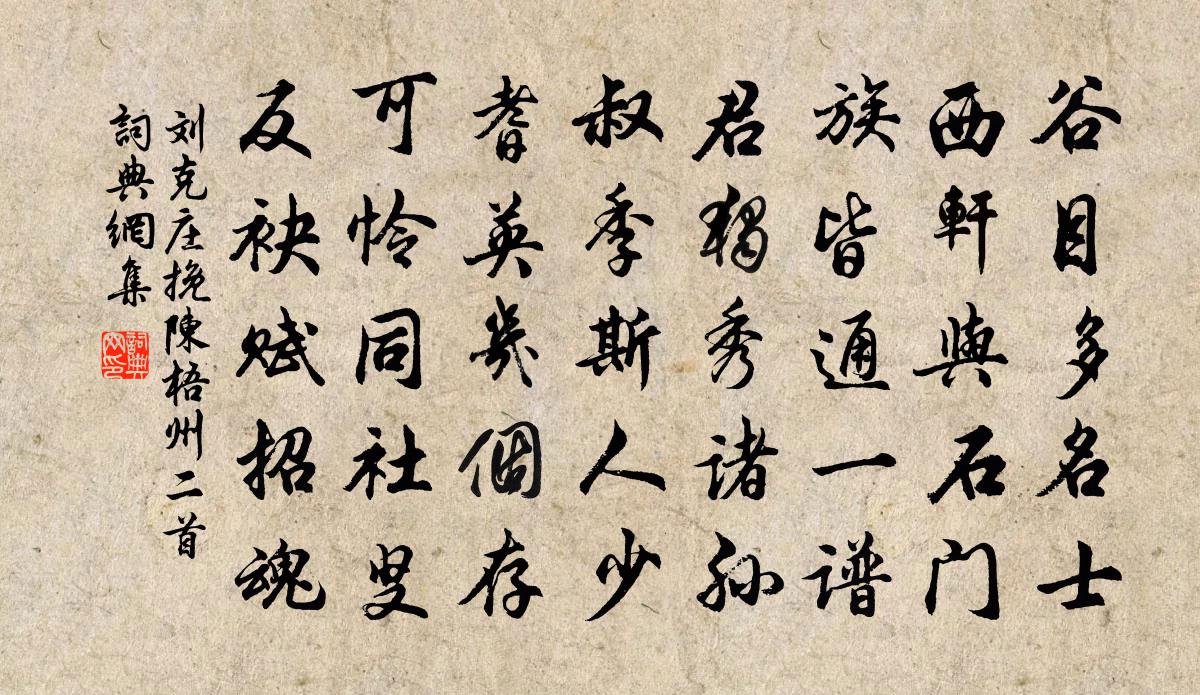 谷目多名士
西軒與石门
族皆通一谱
君獨秀诸孙
叔季斯人少
耆英幾個存
可怜同社叟
反袂赋招魂
刘克庄挽陳梧州二首
詞典網集
詞典网印